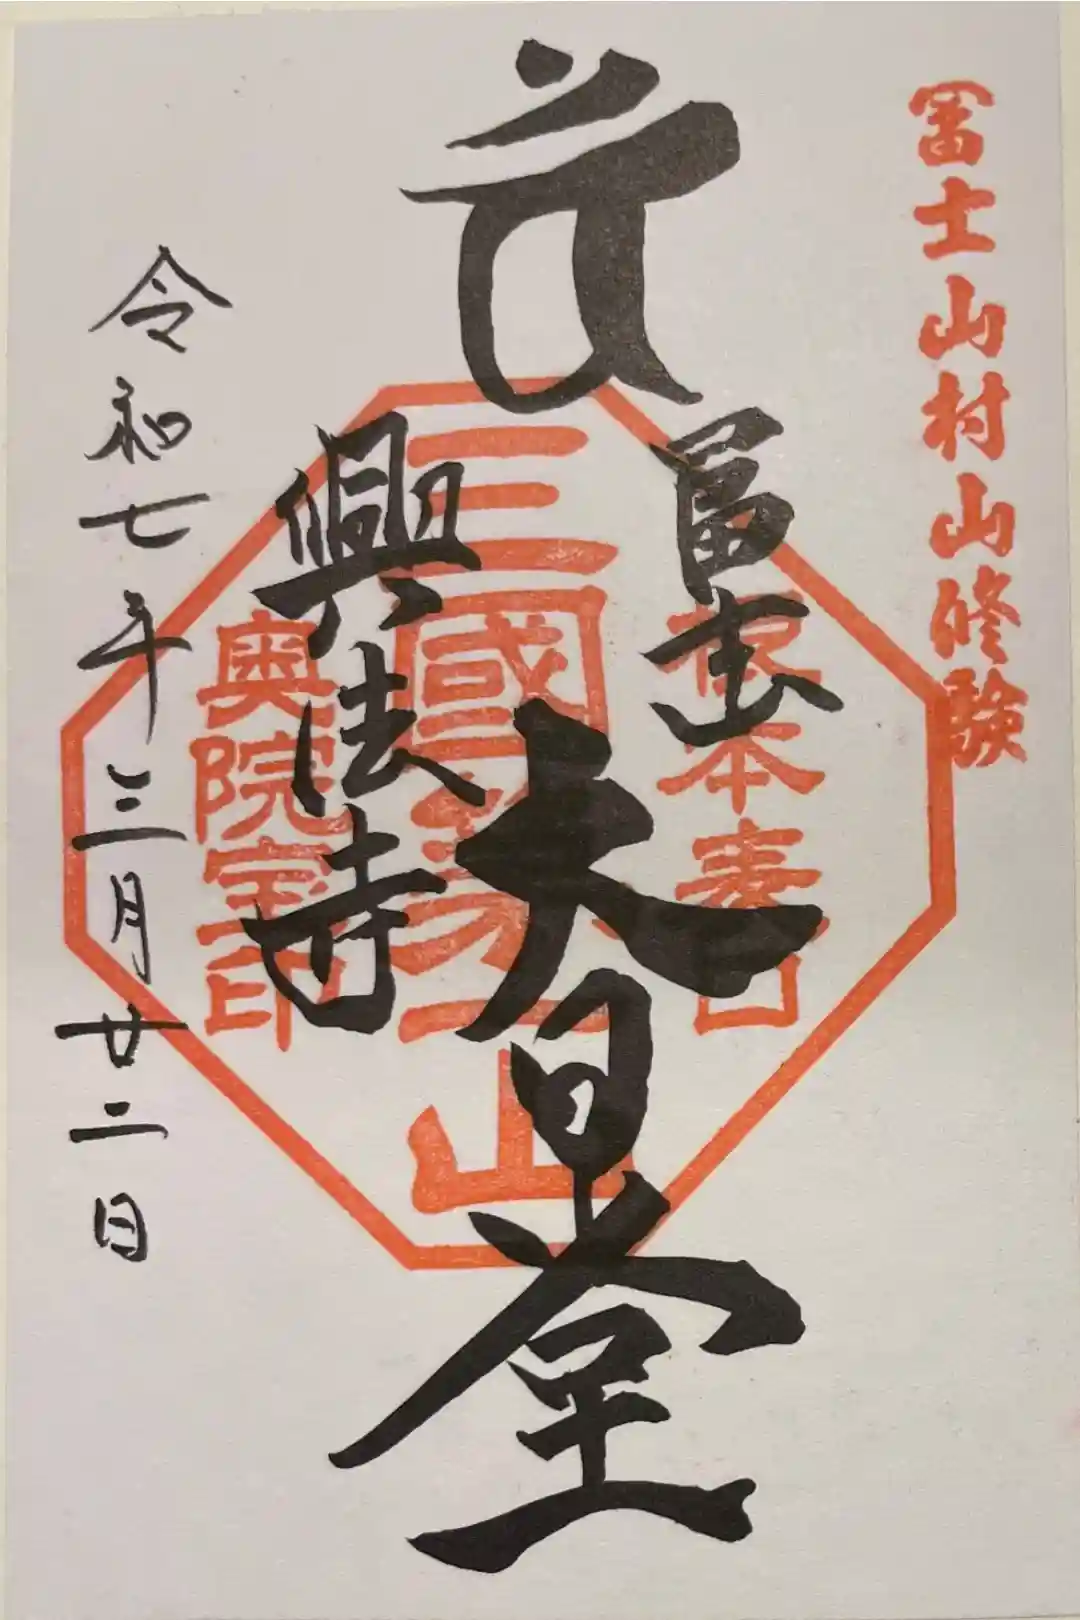 冨士山村山修験
冨士山
大日堂
興法寺
令和七年三月廿二日
根本表口
三國第一山
奥院宝印